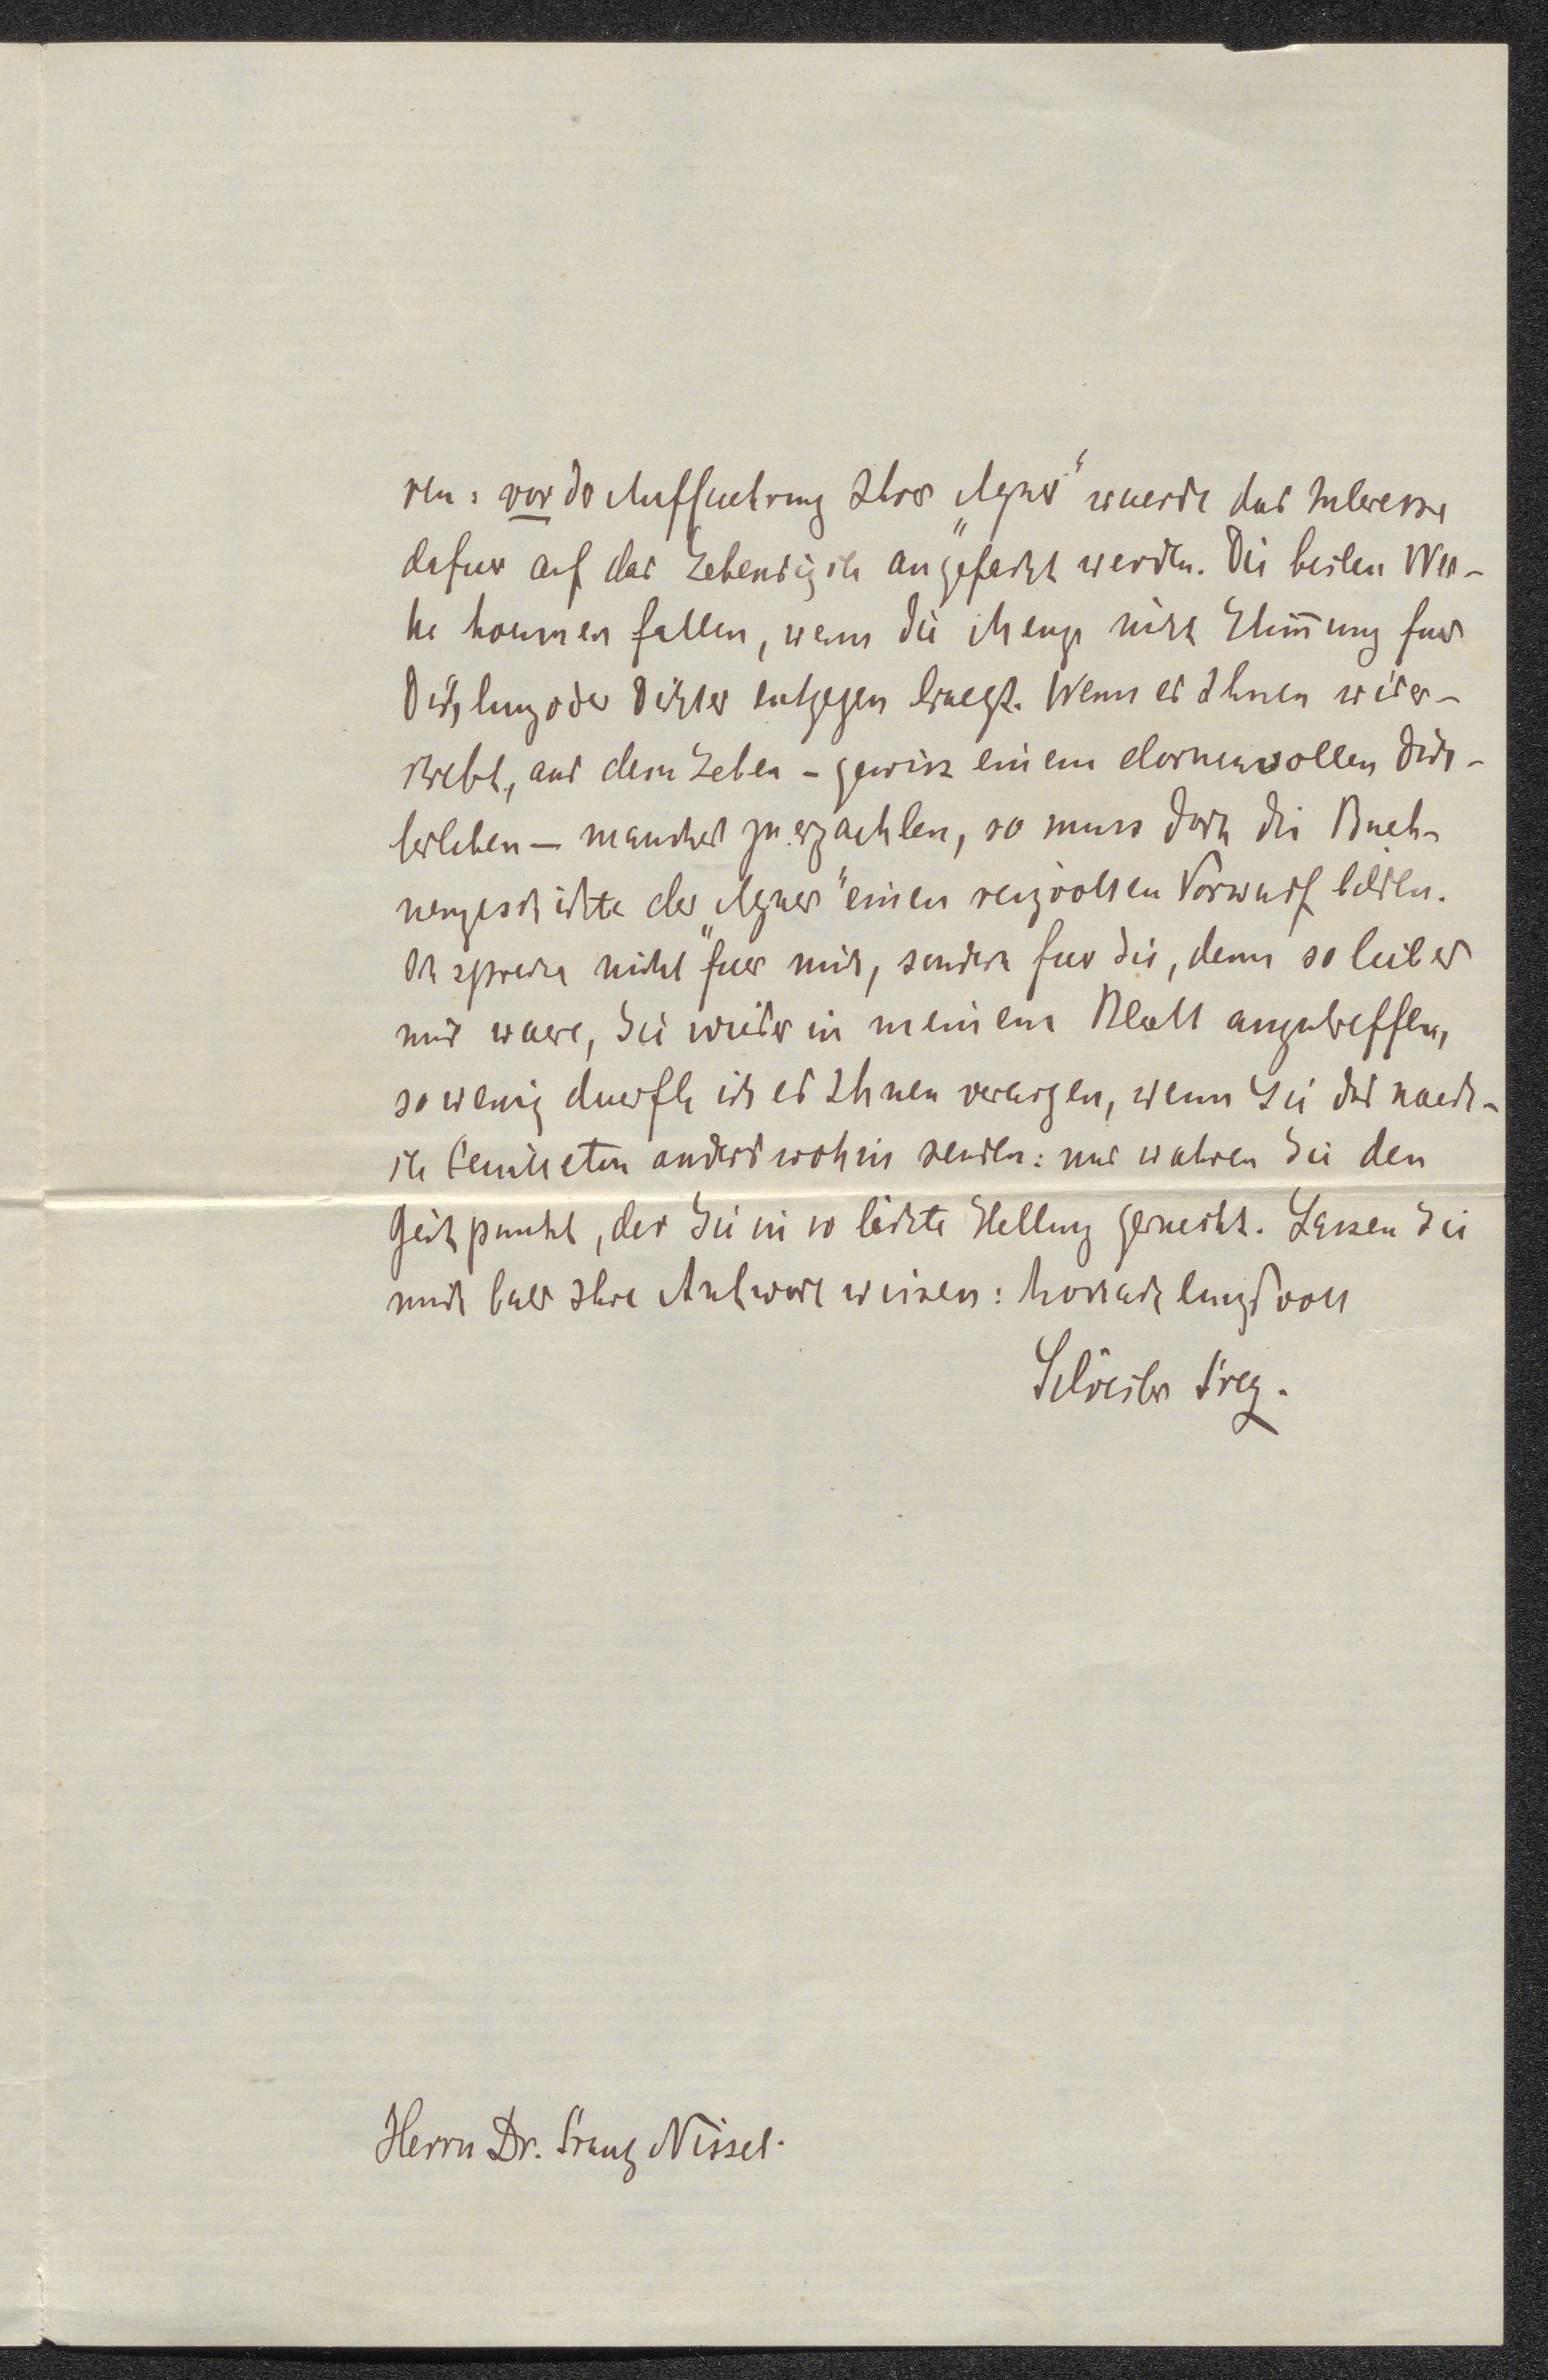 ren: vor der Auffuehrung Ihrer „Agnes“ wuerde das Interesse
dafuer auf das Lebendigste angefacht werden. Die besten Wer-
ke koennen fallen, wenn die Menge nicht Stim̅ung fuer
Dichtung oder Dichter entgegen bringt. Wenn es Ihnen wider-
strebt, aus dem Leben – gewiss einem dornenvollen Dich-
terleben – manches zu erzaehlen, so muss doch die Bueh-
nengeschichte der „Agnes“ einen reizvollen Vorwurf bilden.
Ich spreche nicht fuer mich, sondern fuer Sie, denn so lieb es
mir waere, Sie wieder in meinem Blatt anzutreffen,
so wenig duerfte ich es Ihnen verargen, wenn Sie das naech-
ste Feuilleton anderswohin senden: nur wahren Sie den
Zeitpunkt, der Sie in so lichte Stellung gerueckt. Lassen Sie
mich bald Ihre Antwort wissen: hochachtungsvoll
Silvester Frey.
Herrn Dr. Franz Nissel.